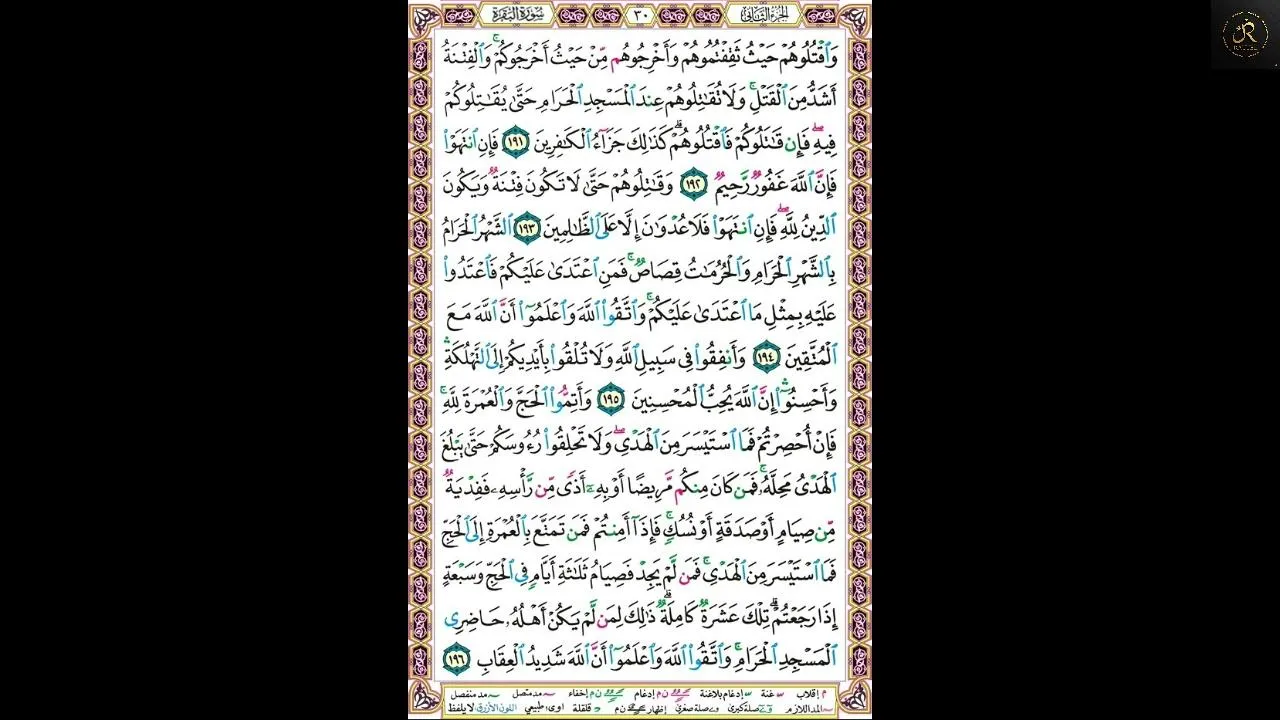 الجزء الثاني ٣٠ سورة البقرة
وَاقْتُلُوهُمْ حَيْثُ ثَقِفْتُمُوهُمْ وَأَخْرِجُوهُم مِّنْ حَيْثُ أَخْرَجُوكُمْ ۚ وَالْفِتْنَةُ
أَشَدُّ مِنَ الْقَتْلِ ۚ وَلَا تُقَاتِلُوهُمْ عِندَ الْمَسْجِدِ الْحَرَامِ حَتَّىٰ يُقَاتِلُوكُمْ
فِيهِ ۖ فَإِن قَاتَلُوكُمْ فَاقْتُلُوهُمْ ۗ كَذَٰلِكَ جَزَاءُ الْكَافِرِينَ ١٩١ فَإِنِ انتَهَوْا
فَإِنَّ اللَّهَ غَفُورٌ رَّحِيمٌ ١٩٢ وَقَاتِلُوهُمْ حَتَّىٰ لَا تَكُونَ فِتْنَةٌ وَيَكُونَ
الدِّينُ لِلَّهِ ۖ فَإِنِ انتَهَوْا فَلَا عُدْوَانَ إِلَّا عَلَى الظَّالِمِينَ ١٩٣ الشَّهْرُ الْحَرَامُ
بِالشَّهْرِ الْحَرَامِ وَالْحُرُمَاتُ قِصَاصٌ ۚ فَمَنِ اعْتَدَىٰ عَلَيْكُمْ فَاعْتَدُوا
عَلَيْهِ بِمِثْلِ مَا اعْتَدَىٰ عَلَيْكُمْ ۚ وَاتَّقُوا اللَّهَ وَاعْلَمُوا أَنَّ اللَّهَ مَعَ
الْمُتَّقِينَ ١٩٤ وَأَنفِقُوا فِي سَبِيلِ اللَّهِ وَلَا تُلْقُوا بِأَيْدِيكُمْ إِلَى التَّهْلُكَةِ ۛ
وَأَحْسِنُوا ۛ إِنَّ اللَّهَ يُحِبُّ الْمُحْسِنِينَ ١٩٥ وَأَتِمُّوا الْحَجَّ وَالْعُمْرَةَ لِلَّهِ ۚ
فَإِنْ أُحْصِرْتُمْ فَمَا اسْتَيْسَرَ مِنَ الْهَدْيِ ۖ وَلَا تَحْلِقُوا رُءُوسَكُمْ حَتَّىٰ يَبْلُغَ
الْهَدْيُ مَحِلَّهُ ۚ فَمَن كَانَ مِنكُم مَّرِيضًا أَوْ بِهِ أَذًى مِّن رَّأْسِهِ فَفِدْيَةٌ
مِّن صِيَامٍ أَوْ صَدَقَةٍ أَوْ نُسُكٍ ۚ فَإِذَا أَمِنتُمْ فَمَن تَمَتَّعَ بِالْعُمْرَةِ إِلَى الْحَجِّ
فَمَا اسْتَيْسَرَ مِنَ الْهَدْيِ ۚ فَمَن لَّمْ يَجِدْ فَصِيَامُ ثَلَاثَةِ أَيَّامٍ فِي الْحَجِّ وَسَبْعَةٍ
إِذَا رَجَعْتُمْ ۗ تِلْكَ عَشَرَةٌ كَامِلَةٌ ۗ ذَٰلِكَ لِمَن لَّمْ يَكُنْ أَهْلُهُ حَاضِرِي
الْمَسْجِدِ الْحَرَامِ ۚ وَاتَّقُوا اللَّهَ وَاعْلَمُوا أَنَّ اللَّهَ شَدِيدُ الْعِقَابِ ١٩٦
م إقلاب غنة إدغام بلاغنة ن م إدغام ن م إخفاء مد متصل مد منفصل
المد اللازم صلة كبرى صلة صغرى إظهار ن م قلقلة اوى طبيعي اللون الأزرق لا يلفظ